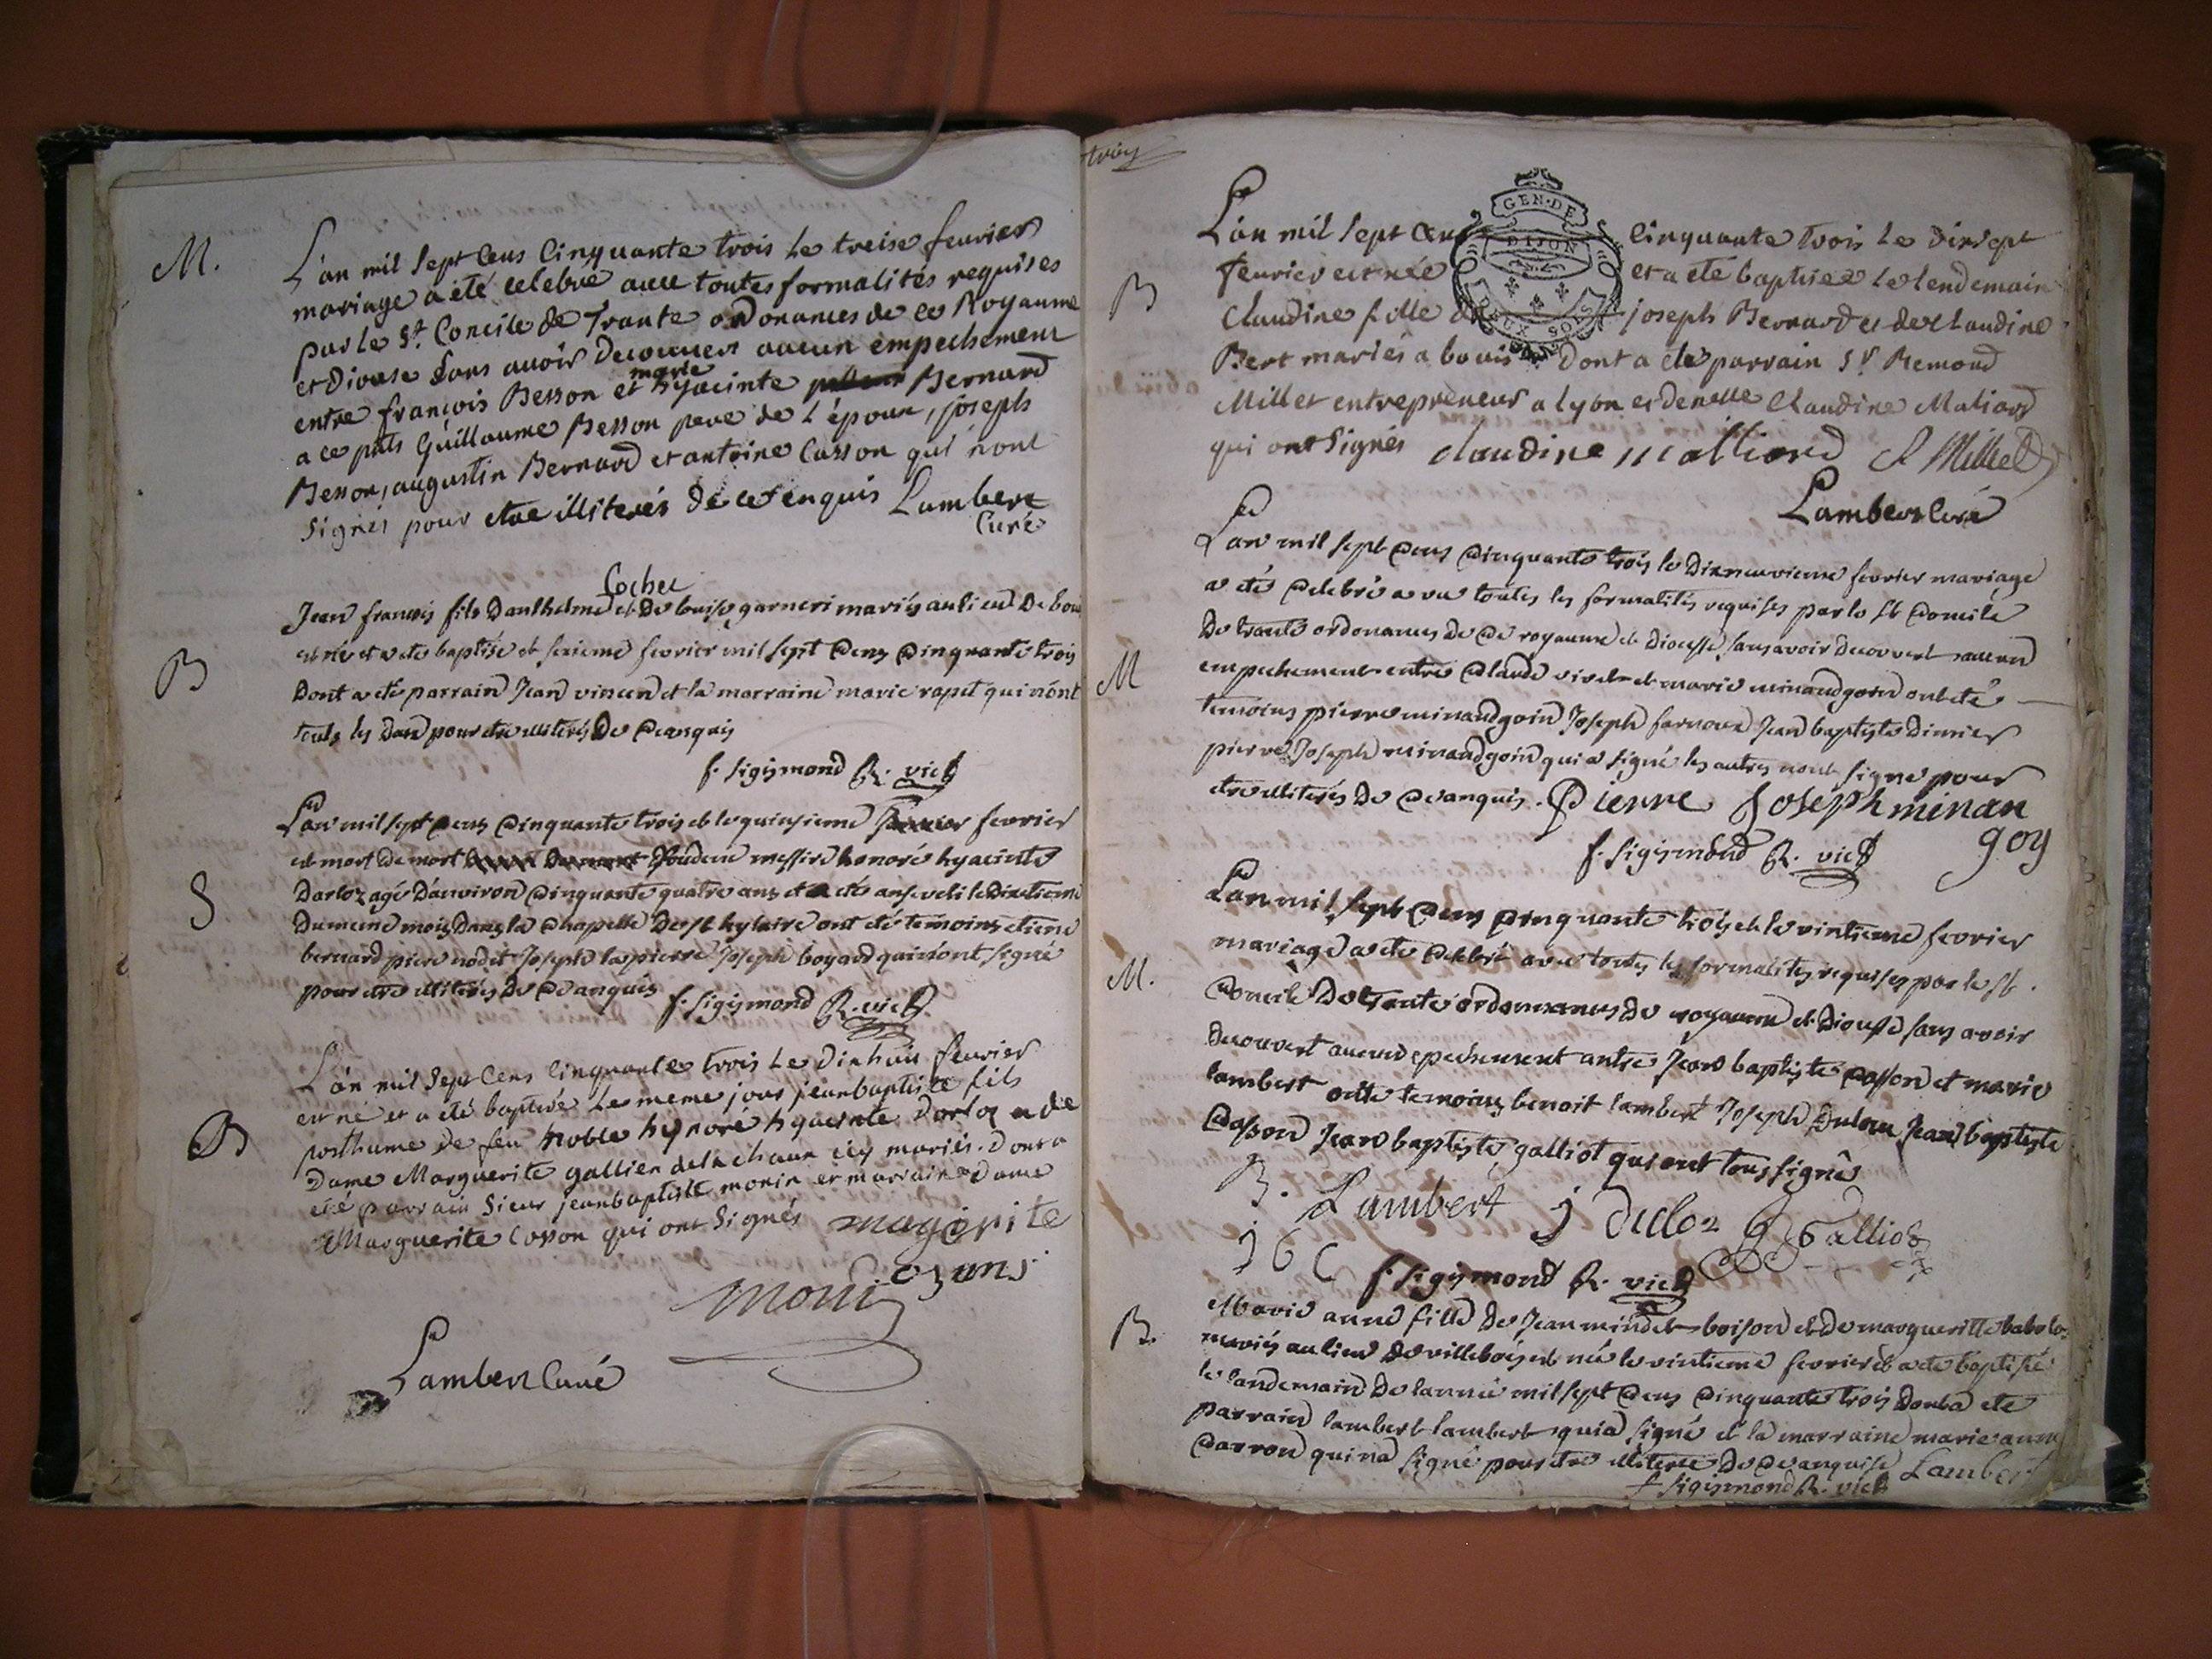 M.
L'an mil sept cens cinquante trois le treise feuvrier
mariage a été celebré avec toutes formalités requises
par le St. Concile de Trante ordonances de ce Royaume
et Diocese sans avoir decouvert aucun empechement
marie
entre françois Besson et hyacinte Bernard
a ce pnts Guillaume Besson pere de l'époux, joseph
Besson, augustin Bernard et antoine Casson qui n'ont
signés pour etre illiterés de ce enquis Lambert
Curé
Cochet
B
Jean françois fils Danthelme et de louise garneri mariés au lieu De boui
est né et a été baptisé et sesieme fevrier mil sept cens cinquante trois
Dont a eté parrain Jean vincen et la marraine marie rapet qui n'ont
pour etre illiterés De ce anquis
f. sigismond R. vic
S
L'an mil sept cens cinquante trois et le quinsieme fevrier
est mort de mort messire honoré hyacinte
Darloz agé Danviron cinquante quatre ans et a eté anseveli le
Du meme mois Dans la chapelle De st hylaire ont eté temoins etiene
bernard piere nodet Joseph lapierre Joseph boyard qui n'ont signé
pour etre illiterés De ce anquis
f. sigismond R. vic
B
L'an mil sept cens cinquante trois le dixhuit feuvrier
est né et a été baptisé le meme jour jean baptiste fils
posthume de feu noble hynoré hyacinte Darloz et de
Dame Marguerite gallien de la chaux icy mariés. Dont a
été parrain Sieur jean baptiste monin et marraine Dame
Marguerite Cosson qui ont signés magerite
monin
Lambert Curé
trois
B
L'an mil sept cens cinquante trois le dixsept
GEN·DE
DIJON
DEUX SOLS
feuvrier est née et a eté baptisée le lendemain
Claudine fille de joseph Bernard et de Claudine
Bert mariés a bouis Dont a eté parrain Sr. Remond
Millet entrepreneur a lyon et demelle Claudine Maliard
qui ont signés claudine malliard R Millet
Lambert Curé
M
L'an mil sept cens cinquante trois le Dixneuvieme fevrier mariage
a eté celebré avec toutes les formalités requises par le st concile
De trante ordonances de ce royaume et diocesse sans avoir decouvert aucun
empechement entre claude vivet et marie minandgoin ont eté
temoins pierre minandgoin Joseph farnoux Jean baptiste Dimier
pierre Joseph minandgoin qui a signé les autres n'ont signé pour
etre illiterés De ce anquis. Pierre Joseph minan
goy
f. sigismond R. vic
M.
L'an mil sept cens cinquante trois et le vintieme fevrier
mariage a eté celebré avec toutes les formalités requises par le st.
concile De trante ordonnances De royaume et Diocesse sans avoir
Decouvert aucun epechement antre Jean baptiste casson et marie
lambert temoins benoit lambert Joseph Duloz Jean baptiste
Casson Jean baptiste galliot qui ont tous signés
B. Lambert j duloz Galliot
J b c f. sigismond R. vic
B.
Marie anne fille De Jean boison et De margueritte
mariés au lieu De villebois est née le vintieme fevrier et a eté baptisée
le landemain De l'année mil sept cens cinquante trois Dont a eté
parrain lambert lambert qui a signé et la marraine marie anne
carron qui n'a signé pour etre illiterée De ce anquise Lambert
f sigismond R. vic